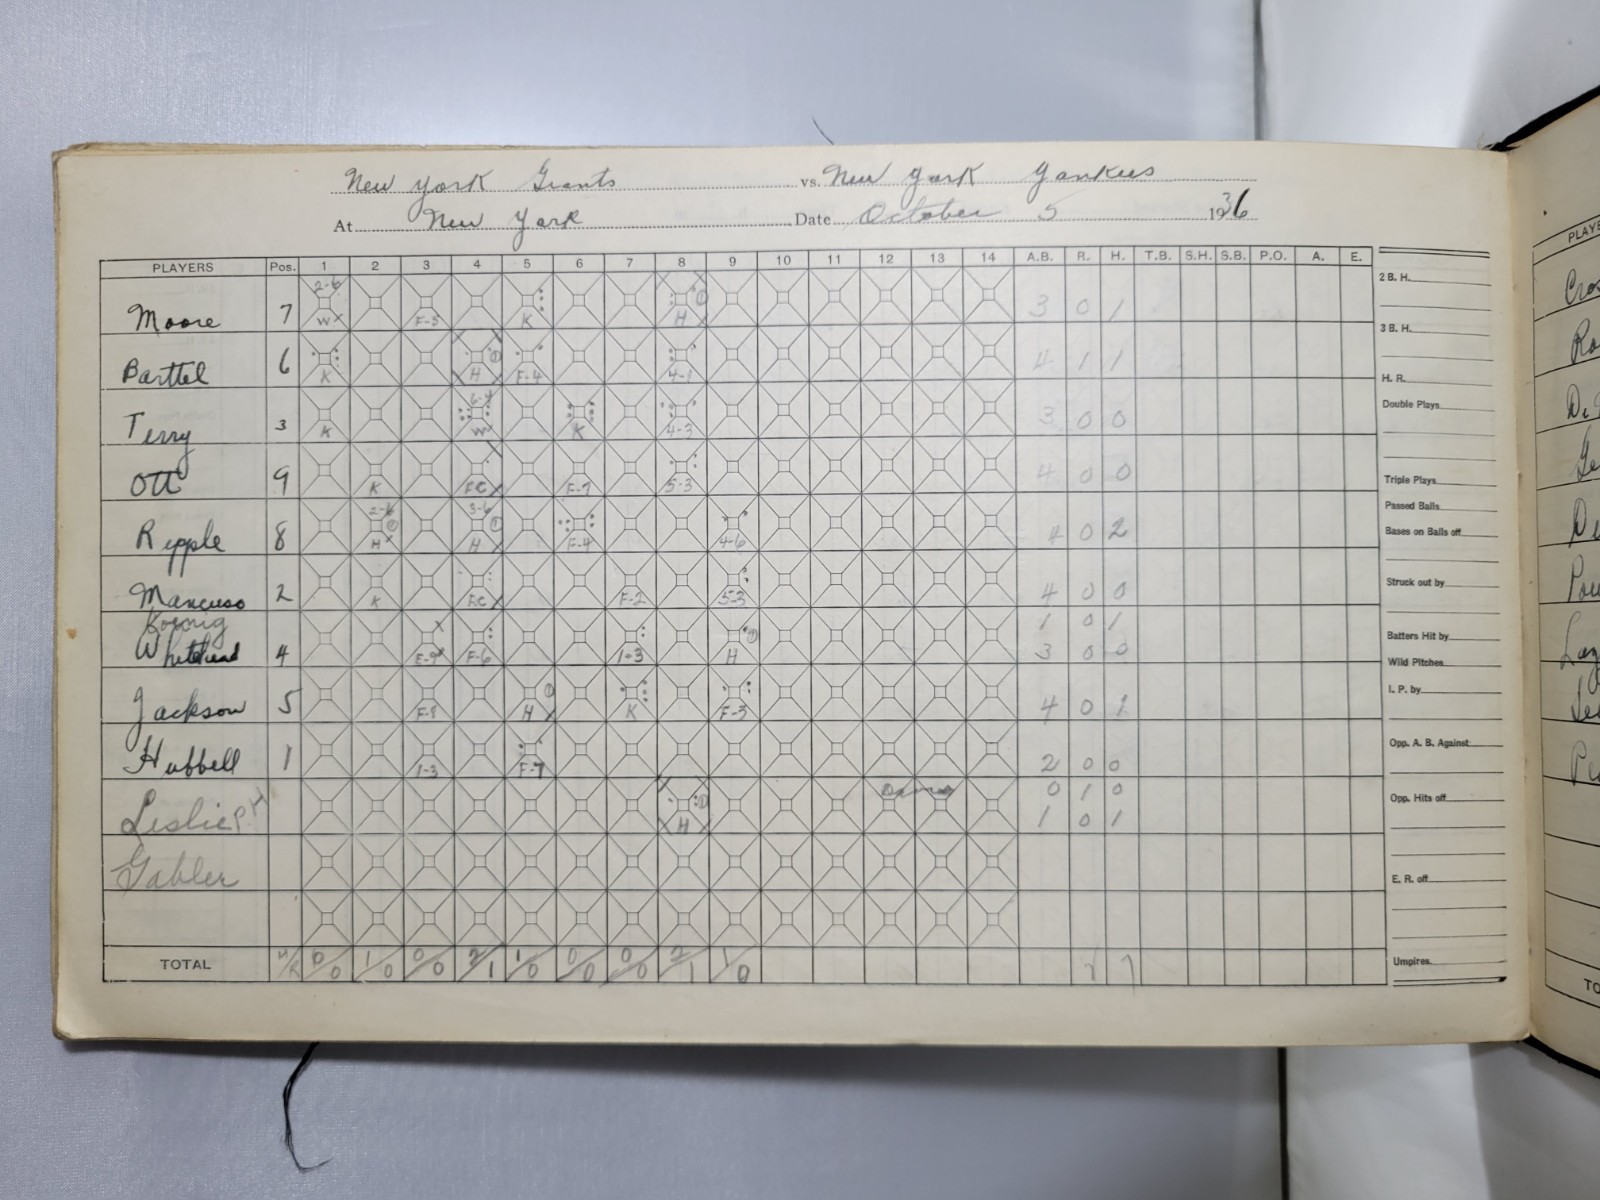 New York Giants vs. New York Yankees
At New York Date October 5 1936
PLAYERS Pos. 1 2 3 4 5 6 7 8 9 10 11 12 13 14 A.B. R. H. T.B. S.H. S.B. P.O. A. E.
Moore 7 2-6 W F-5 K H 3 0 1
Barttel 6 K H F-4 4-1 4 1 1
Terry 3 K 6-4 W K 4-3 3 0 0
Ott 9 K F.C F-7 5-3 4 0 0
Ripple 8 2-6 H 3-6 H F-4 4-6 4 0 2
Mancuso 2 K F.C F-2 5-3 4 0 0
Koenig 1 0 1
Whitehead 4 E-9 F-6 1-3 H 3 0 0
Jackson 5 H K F-3 4 0 1
Hubbell 1 1-3 F-7 2 0 0
Leslie P.H H 0 1 0
1 0 1
Gabler
TOTAL H/R 0/0 1/0 0/0 2/1 1/0 0/0 0/0 2/1 1/0 7
2 B. H.
3 B. H.
H. R.
Double Plays
Triple Plays
Passed Balls
Bases on Balls off
Struck out by
Batters Hit by
Wild Pitches
I. P. by
Opp. A. B. Against
Opp. Hits off
E. R. off
Umpires
PLAYE
Cros
Ro
Di
Ge
Di
Pow
Laz
Se
Pe
TO